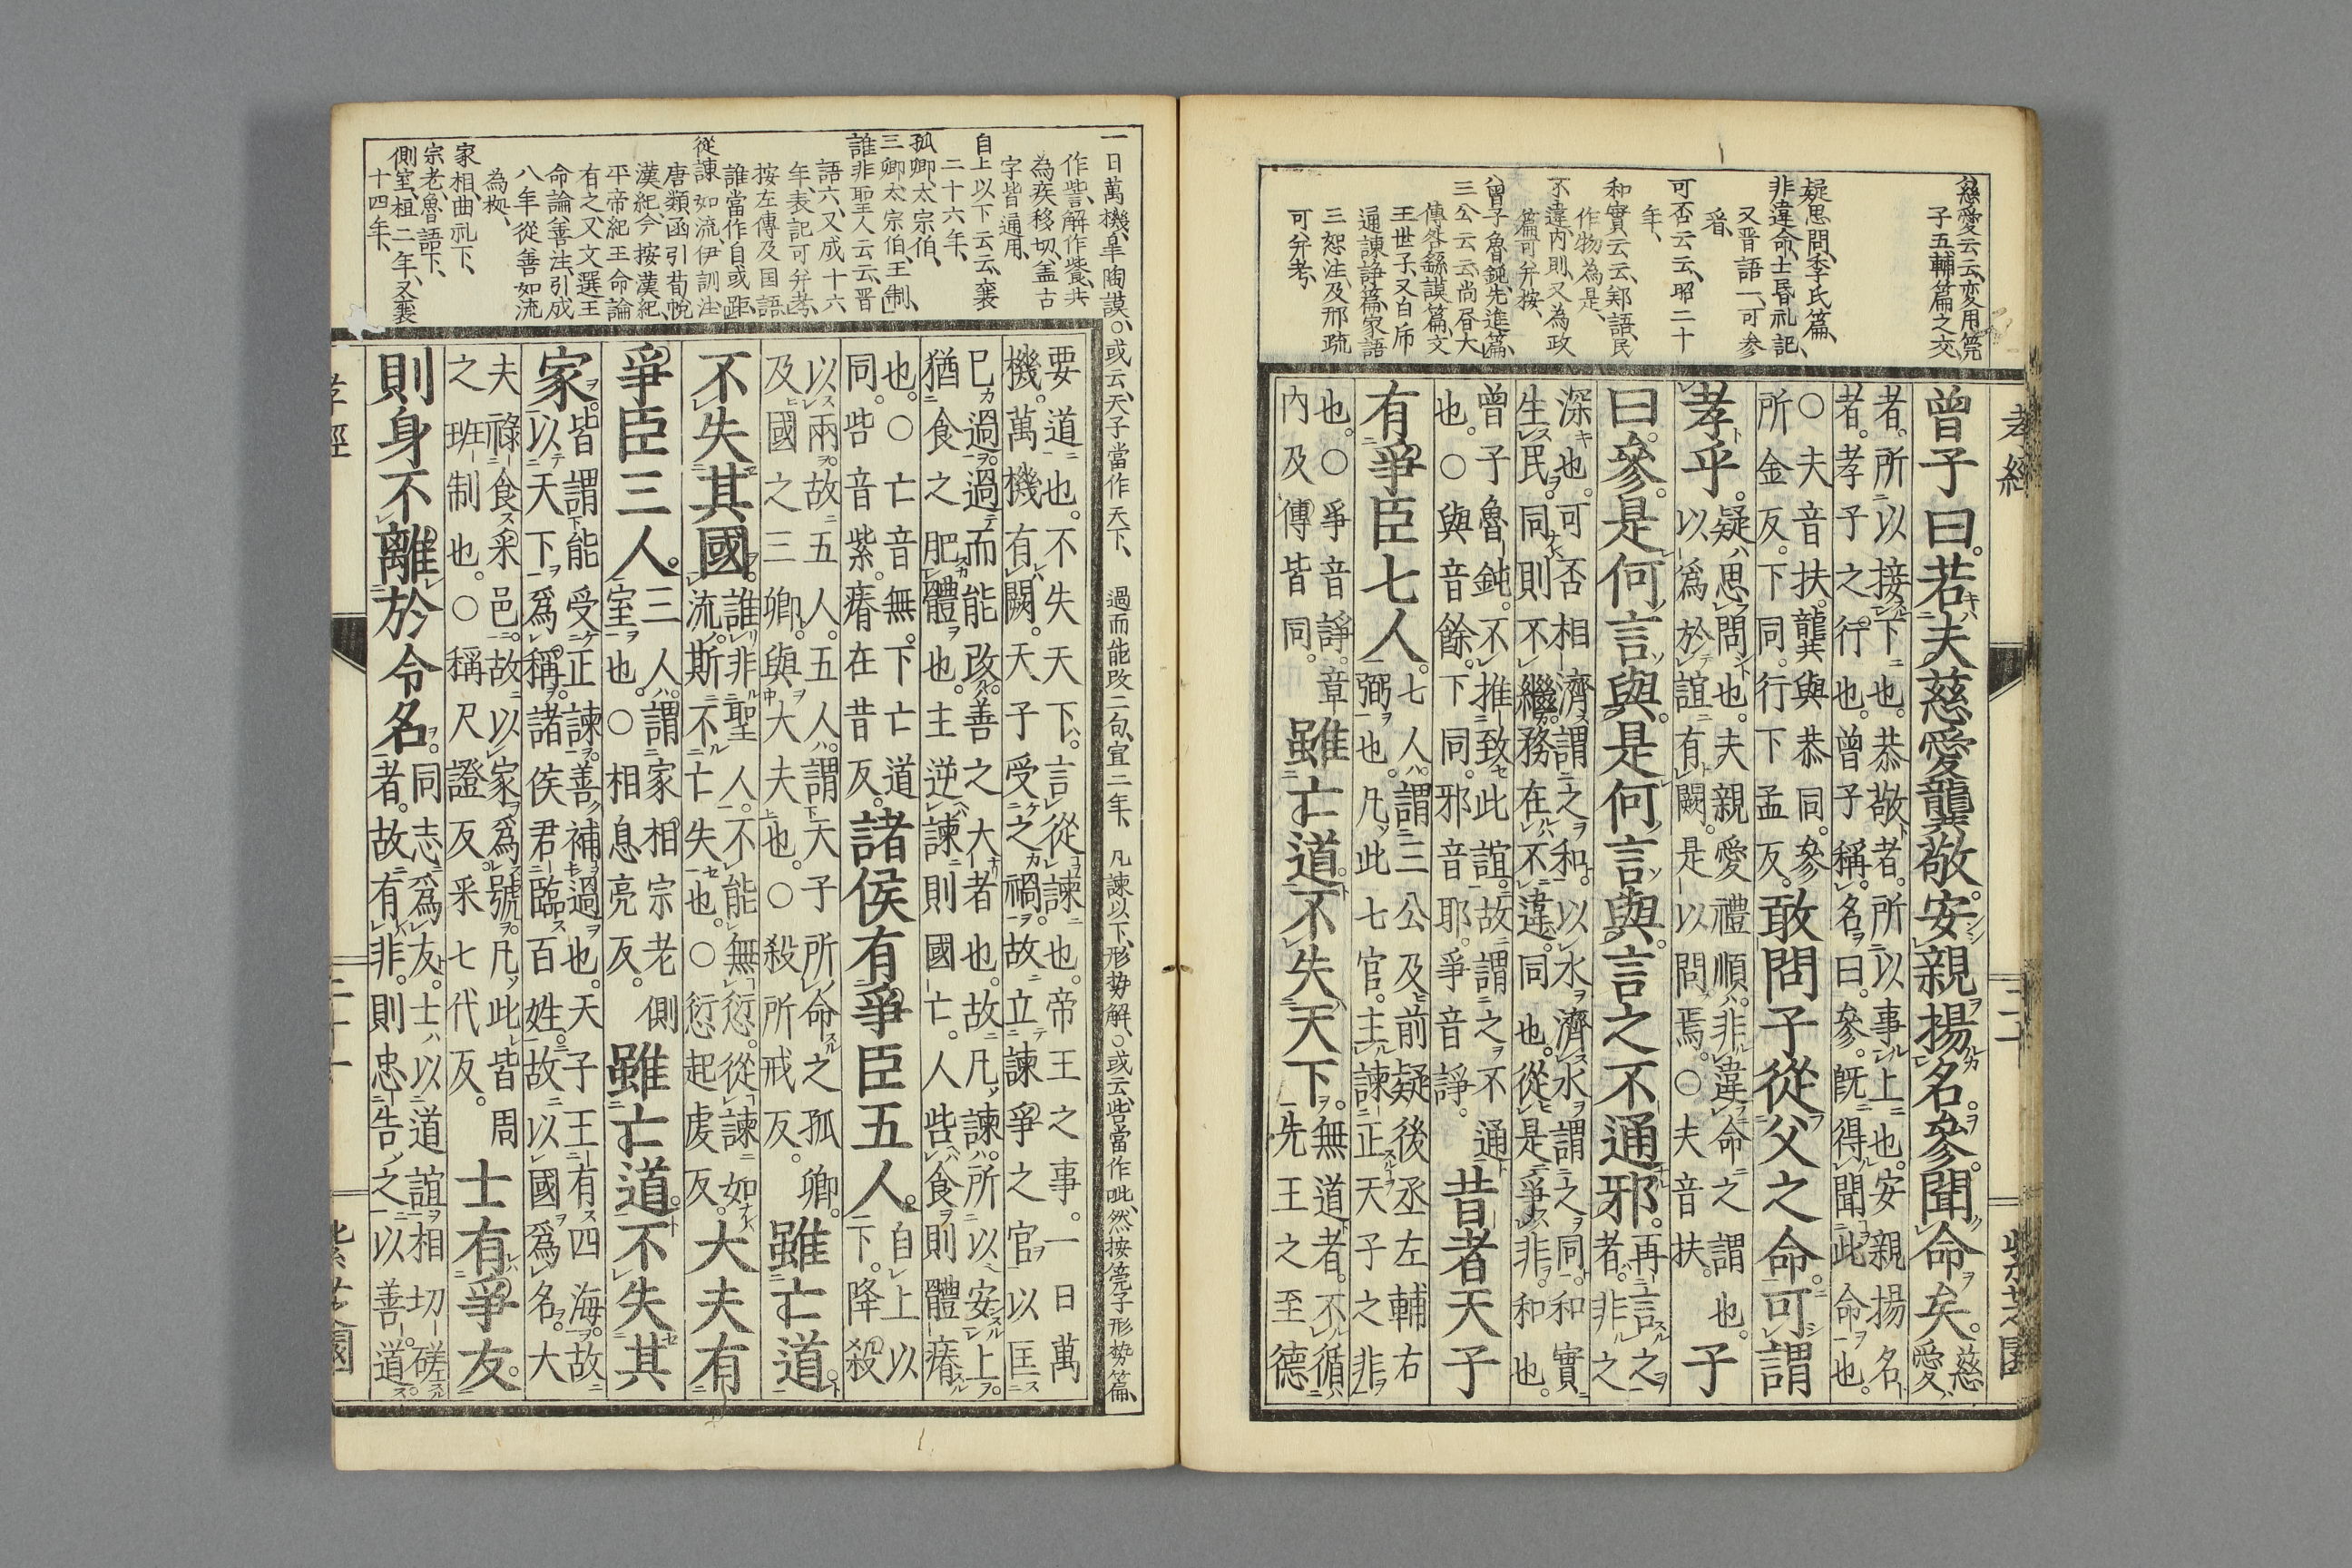 孝經
三十
紫芝園
慈愛云云、変用筦
子五輔篇之交、
疑思問、季氏篇、
非違命、士昏礼記
又晋語一、可参
看、
可否云云、昭二十
年、
和實云云、郑語、民
作物為是、
不違、内則、又為政
篇可弁按、
曾子魯鈍、先進篇、
三公云云、尚㞐大
傳咎繇謨篇、文
王世子、又白虎
通諌諍篇、家語
三恕注、及邢疏
可弁考、
曾子曰。若夫慈愛龔敬。安親揚名。參聞命矣。慈愛
者。所以接下也。恭敬者。所以事上也。安親揚名
者。孝子之行也。曾子稱名曰參。旣得聞此命也。
○夫音扶。龔與恭同。參
所金反。下同。行下孟反。敢問子從父之命。可謂
孝乎。疑思問也。夫親愛禮順。非違命之謂也。
以爲於誼有闕。是以問焉。○夫音扶。子
曰。參。是何言與。是何言與。言之不通邪。再言之者。非之
深也。可否相濟謂之和。以水濟水謂之同。和實
生民。同則不繼。務在不違。同也。從是爭非。和也。
曾子魯鈍。不推致此誼。故謂之不通
也。○與音餘。下同。邪音耶。爭音諍。昔者天子
有爭臣七人。七人。謂三公及前疑後丞左輔右
弼也。凡此七官。主諫正天子之非
也。○爭音諍。章
内及傳皆同。雖亡道。不失天下。無道者。不循
先王之至德
一日萬機、皐陶謨。○或云、天子當作天下、 過而能改二句、宣二年、 凡諫以下、形㔟解、○或云、呰當作呲、然按筦子形㔟篇、
作訾、解作飺、共
為疾移切、盖古
字皆通用、
自上以下云云、襄
二十六年、
孤卿、太宗伯、
三卿太宗伯、王制、
誰非聖人云云、晋
語六、又成十六
年、表記可弁考、
按左傳及国語、
誰當作自、或距、
從諌如流、伊訓注
唐類函引荀悅
漢紀、今按漢紀、
平帝紀王命論
有之、又文選王
命論、善注引成
八年從善如流
為㨿、
家相、曲礼下、
宗老、魯語下、
側室、桓二年、又襄
十四年、
要道也。不失天下。言從諫也。帝王之事。一日萬
機。萬機有闕。天子受之禍。故立諫爭之官。以匡
已過。過而能改。善之大者也。故凡諫。所以安上。
猶食之肥體也。主逆諫則國亡。人呰食則體瘠
也。○亡音無。下亡道
同。呰音紫。瘠在昔反。諸侯有爭臣五人。自上以
下。降殺
以兩。故五人。五人。謂天子所命之孤卿。
及國之三卿。與大夫也。○殺所戒反。雖亡道。
不失其國。誰非聖人。不能無愆。從諫如
流。斯不亡失也。○愆起虔反。大夫有
爭臣三人。三人。謂家相宗老側
室也。○相息亮反。雖亡道。不失其
家。皆謂能受正諫。善補過也。天子王有四海。故
以天下爲稱。諸侯君臨百姓。故以國爲名。大
夫祿食采邑。故以家爲號。凡此皆周
之班制也。○稱尺證反。采七代反。士有爭友。
則身不離於令名。同志爲友。士以道誼相切磋
者。故有非。則忠告之。以善道。
孝經
三十一
紫芝園